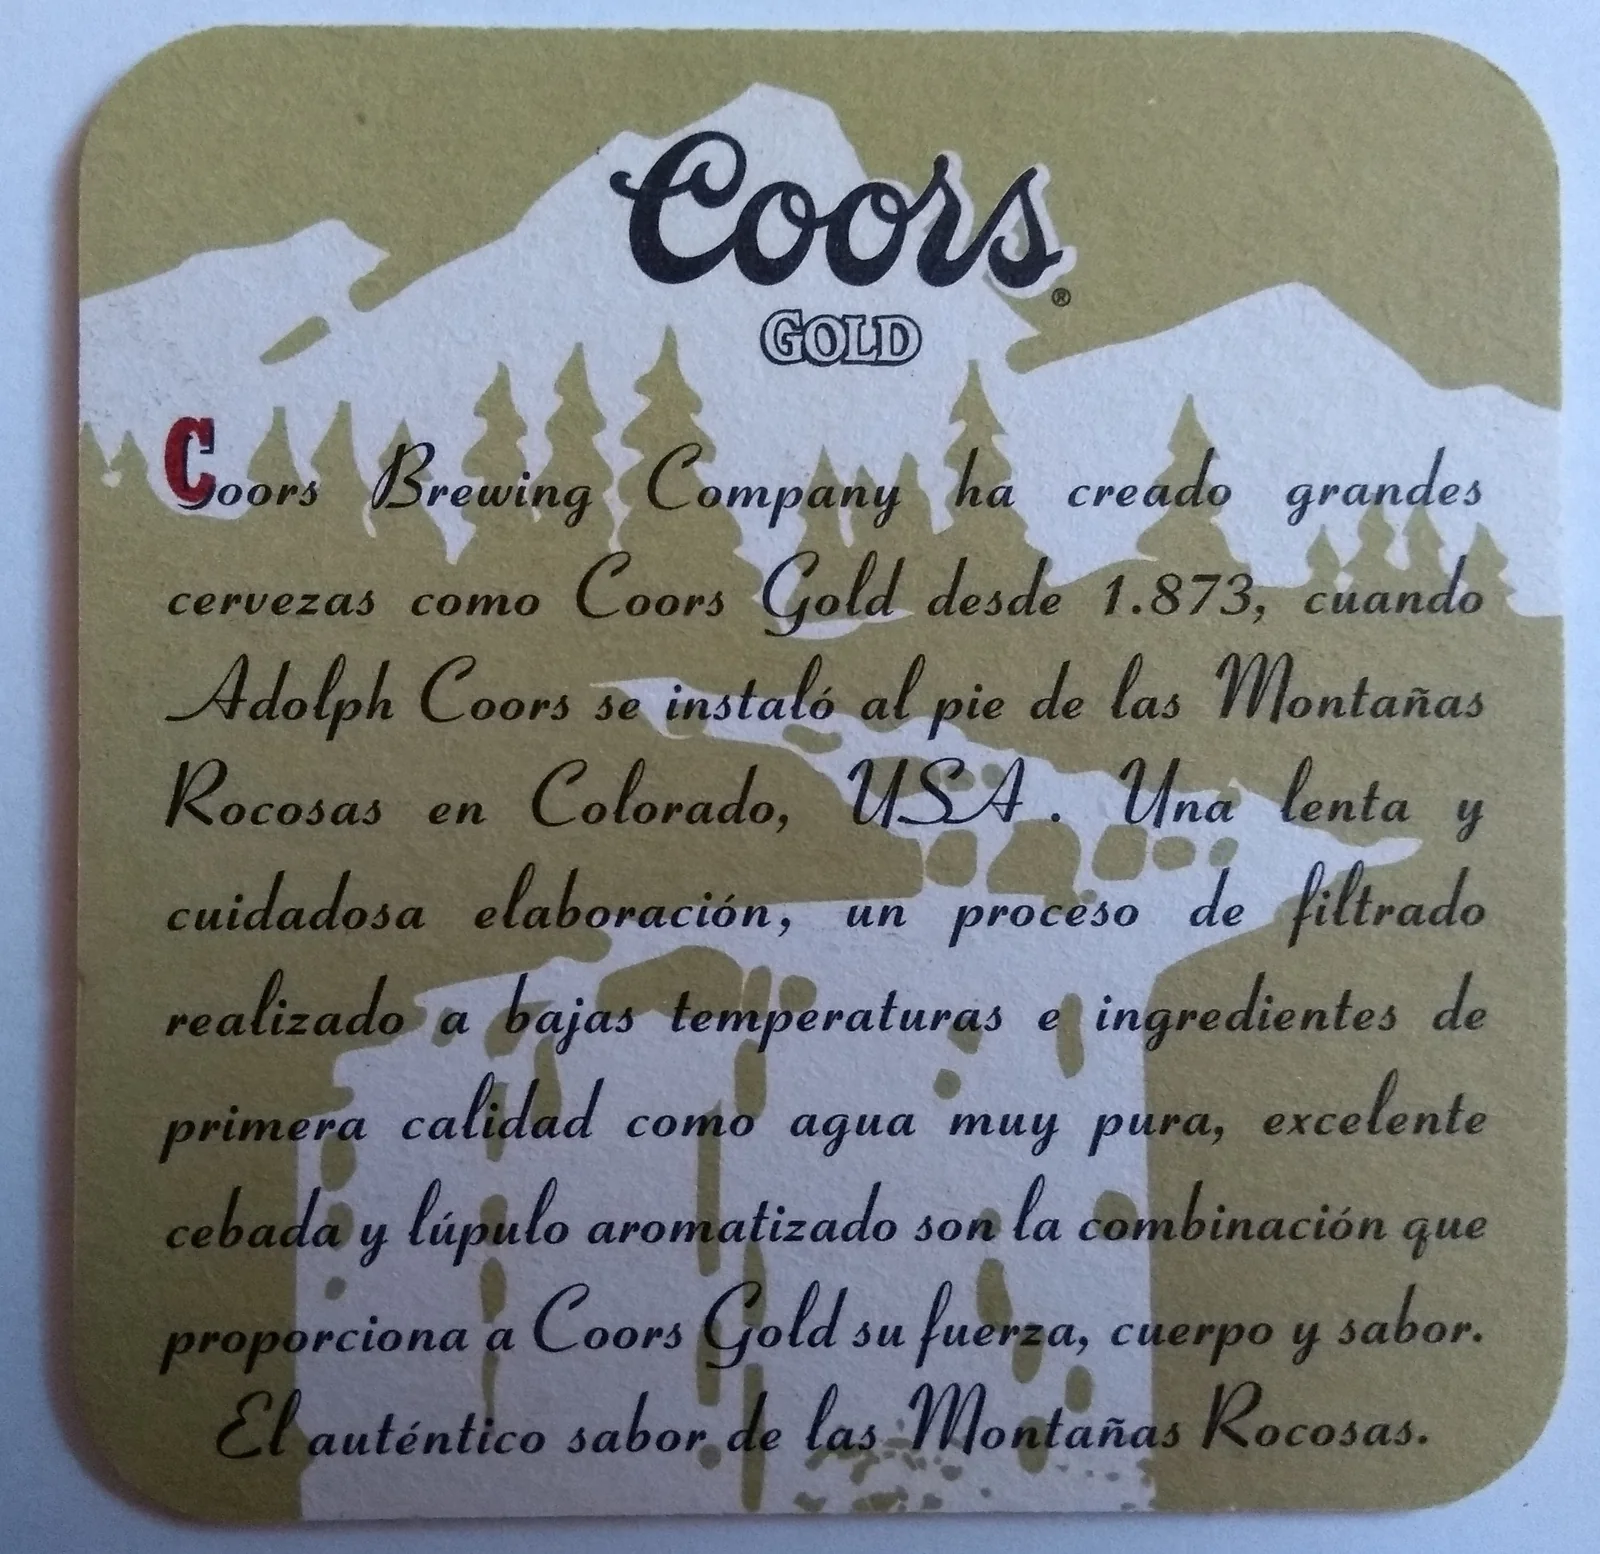 Coors®
GOLD
Coors Brewing Company ha creado grandes
cervezas como Coors Gold desde 1.873, cuando
Adolph Coors se instaló al pie de las Montañas
Rocosas en Colorado, USA. Una lenta y
cuidadosa elaboración, un proceso de filtrado
realizado a bajas temperaturas e ingredientes de
primera calidad como agua muy pura, excelente
cebada y lúpulo aromatizado son la combinación que
proporciona a Coors Gold su fuerza, cuerpo y sabor.
El auténtico sabor de las Montañas Rocosas.